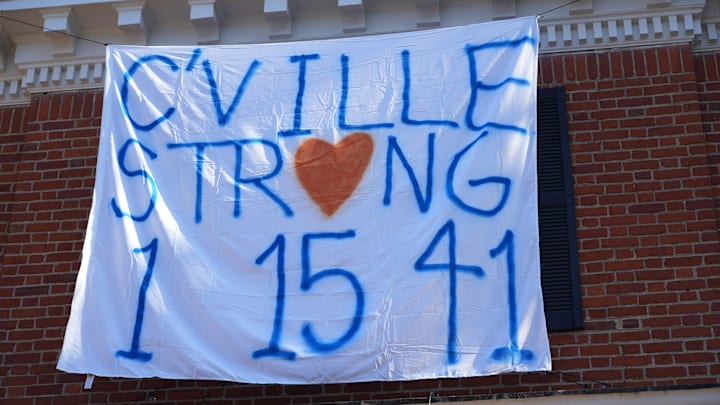 C'VILLE
STRONG
1 15 41